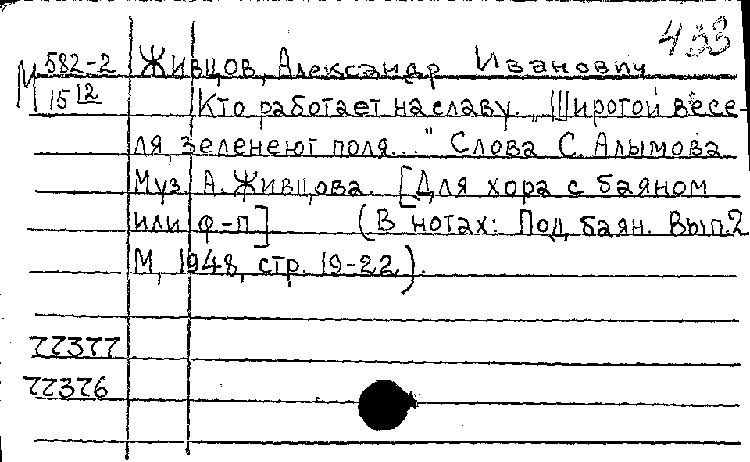 433
М 582-2 Живцов, Александр Иванович
15 12 Кто работает на славу. „Широтой весе-
ля, зеленеют поля..." Слова С. Алымова
Муз. А. Живцова. [Для хора с баяном
или ф-п] (В нотах: Под баян. Вып. 2
М, 1948, стр. 19-22).
77377
77376